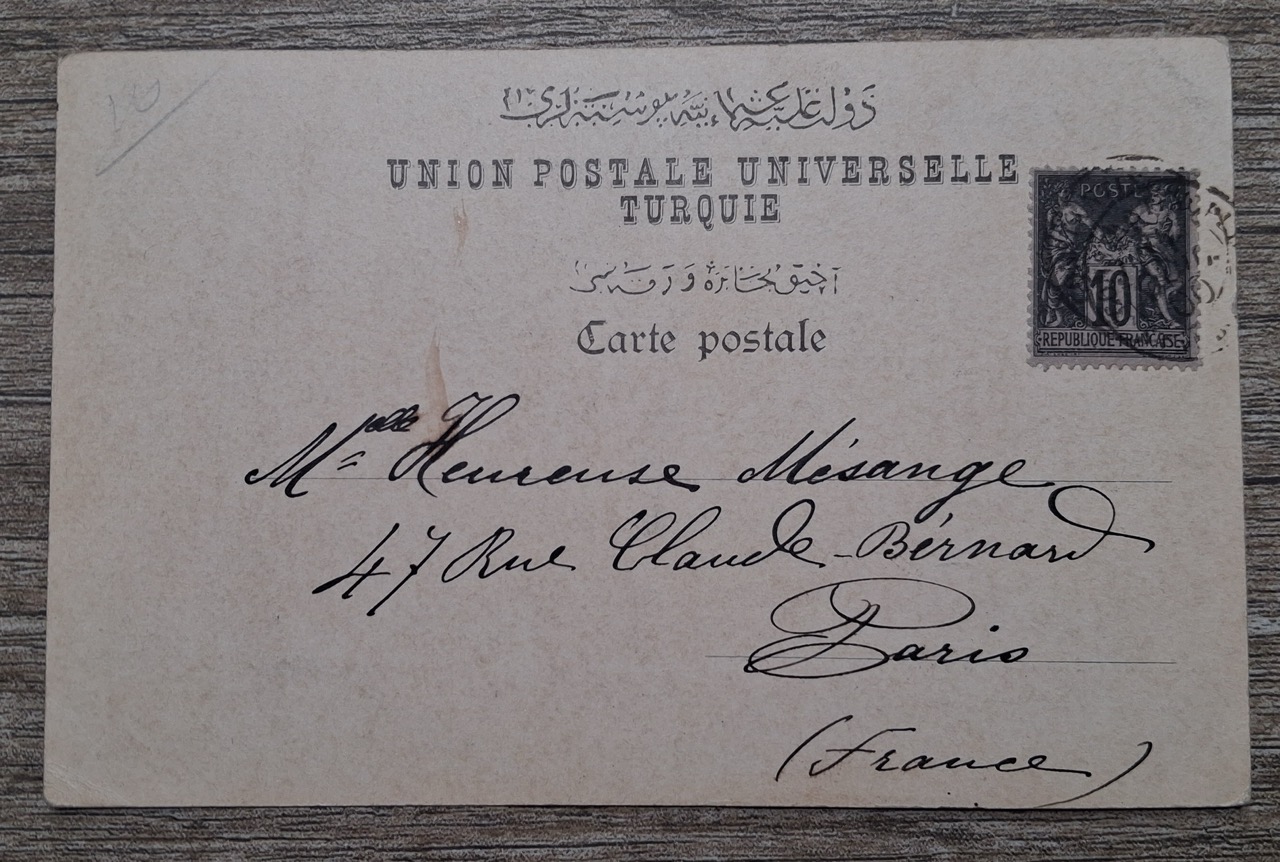 دولت علیهٔ عثمانیه پوسته لری
UNION POSTALE UNIVERSELLE
TURQUIE
آچیق مخابره ورقه سی
Carte postale
POSTE
10
REPUBLIQUE FRANÇAISE
Melle Heureuse Mésange
47 Rue Claude-Bérnard
Paris
(France)